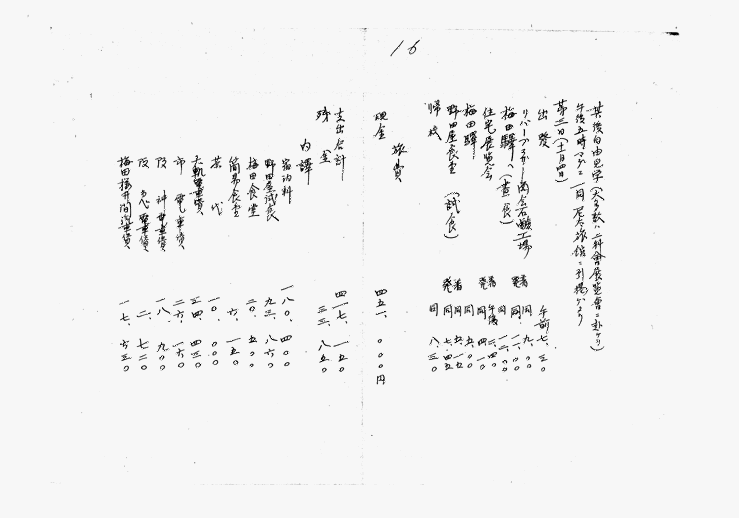 16
其後自由見学(大多数ハ二科會展覧會ニ赴ケリ)
午後五時マデニ一同旅館ニ引揚ゲタリ
第三日(十一月四日)
出発 午前七、三〇
リバーブラザー商会石鹸工場 着 同 九、〇〇 発 同 一一、〇〇
梅田驛(昼食) 同 一二、〇〇
住宅展覧会 着 午後 二、四〇 発 同 四、一〇
梅田驛 同 五、〇〇
野田屋食堂(試食) 着 同 五、一五 発 同 七、四五
帰校 同 八、三〇
旅費
現金 四五一、〇〇〇円
支出合計 四一七、一五〇
残金 三三、八五〇
内譯
宿泊料 一八〇、四〇〇
野田屋試食 九三、八六〇
梅田食堂 二〇、五〇〇
簡易食堂 六、一五〇
茶代 一〇、〇〇〇
大軌電車賃 三四、四三〇
市電車賃 二六、一六〇
阪神電車賃 一八、九〇〇
阪急電車賃 二、七二〇
梅田桜井間汽車賃 一七、六三〇